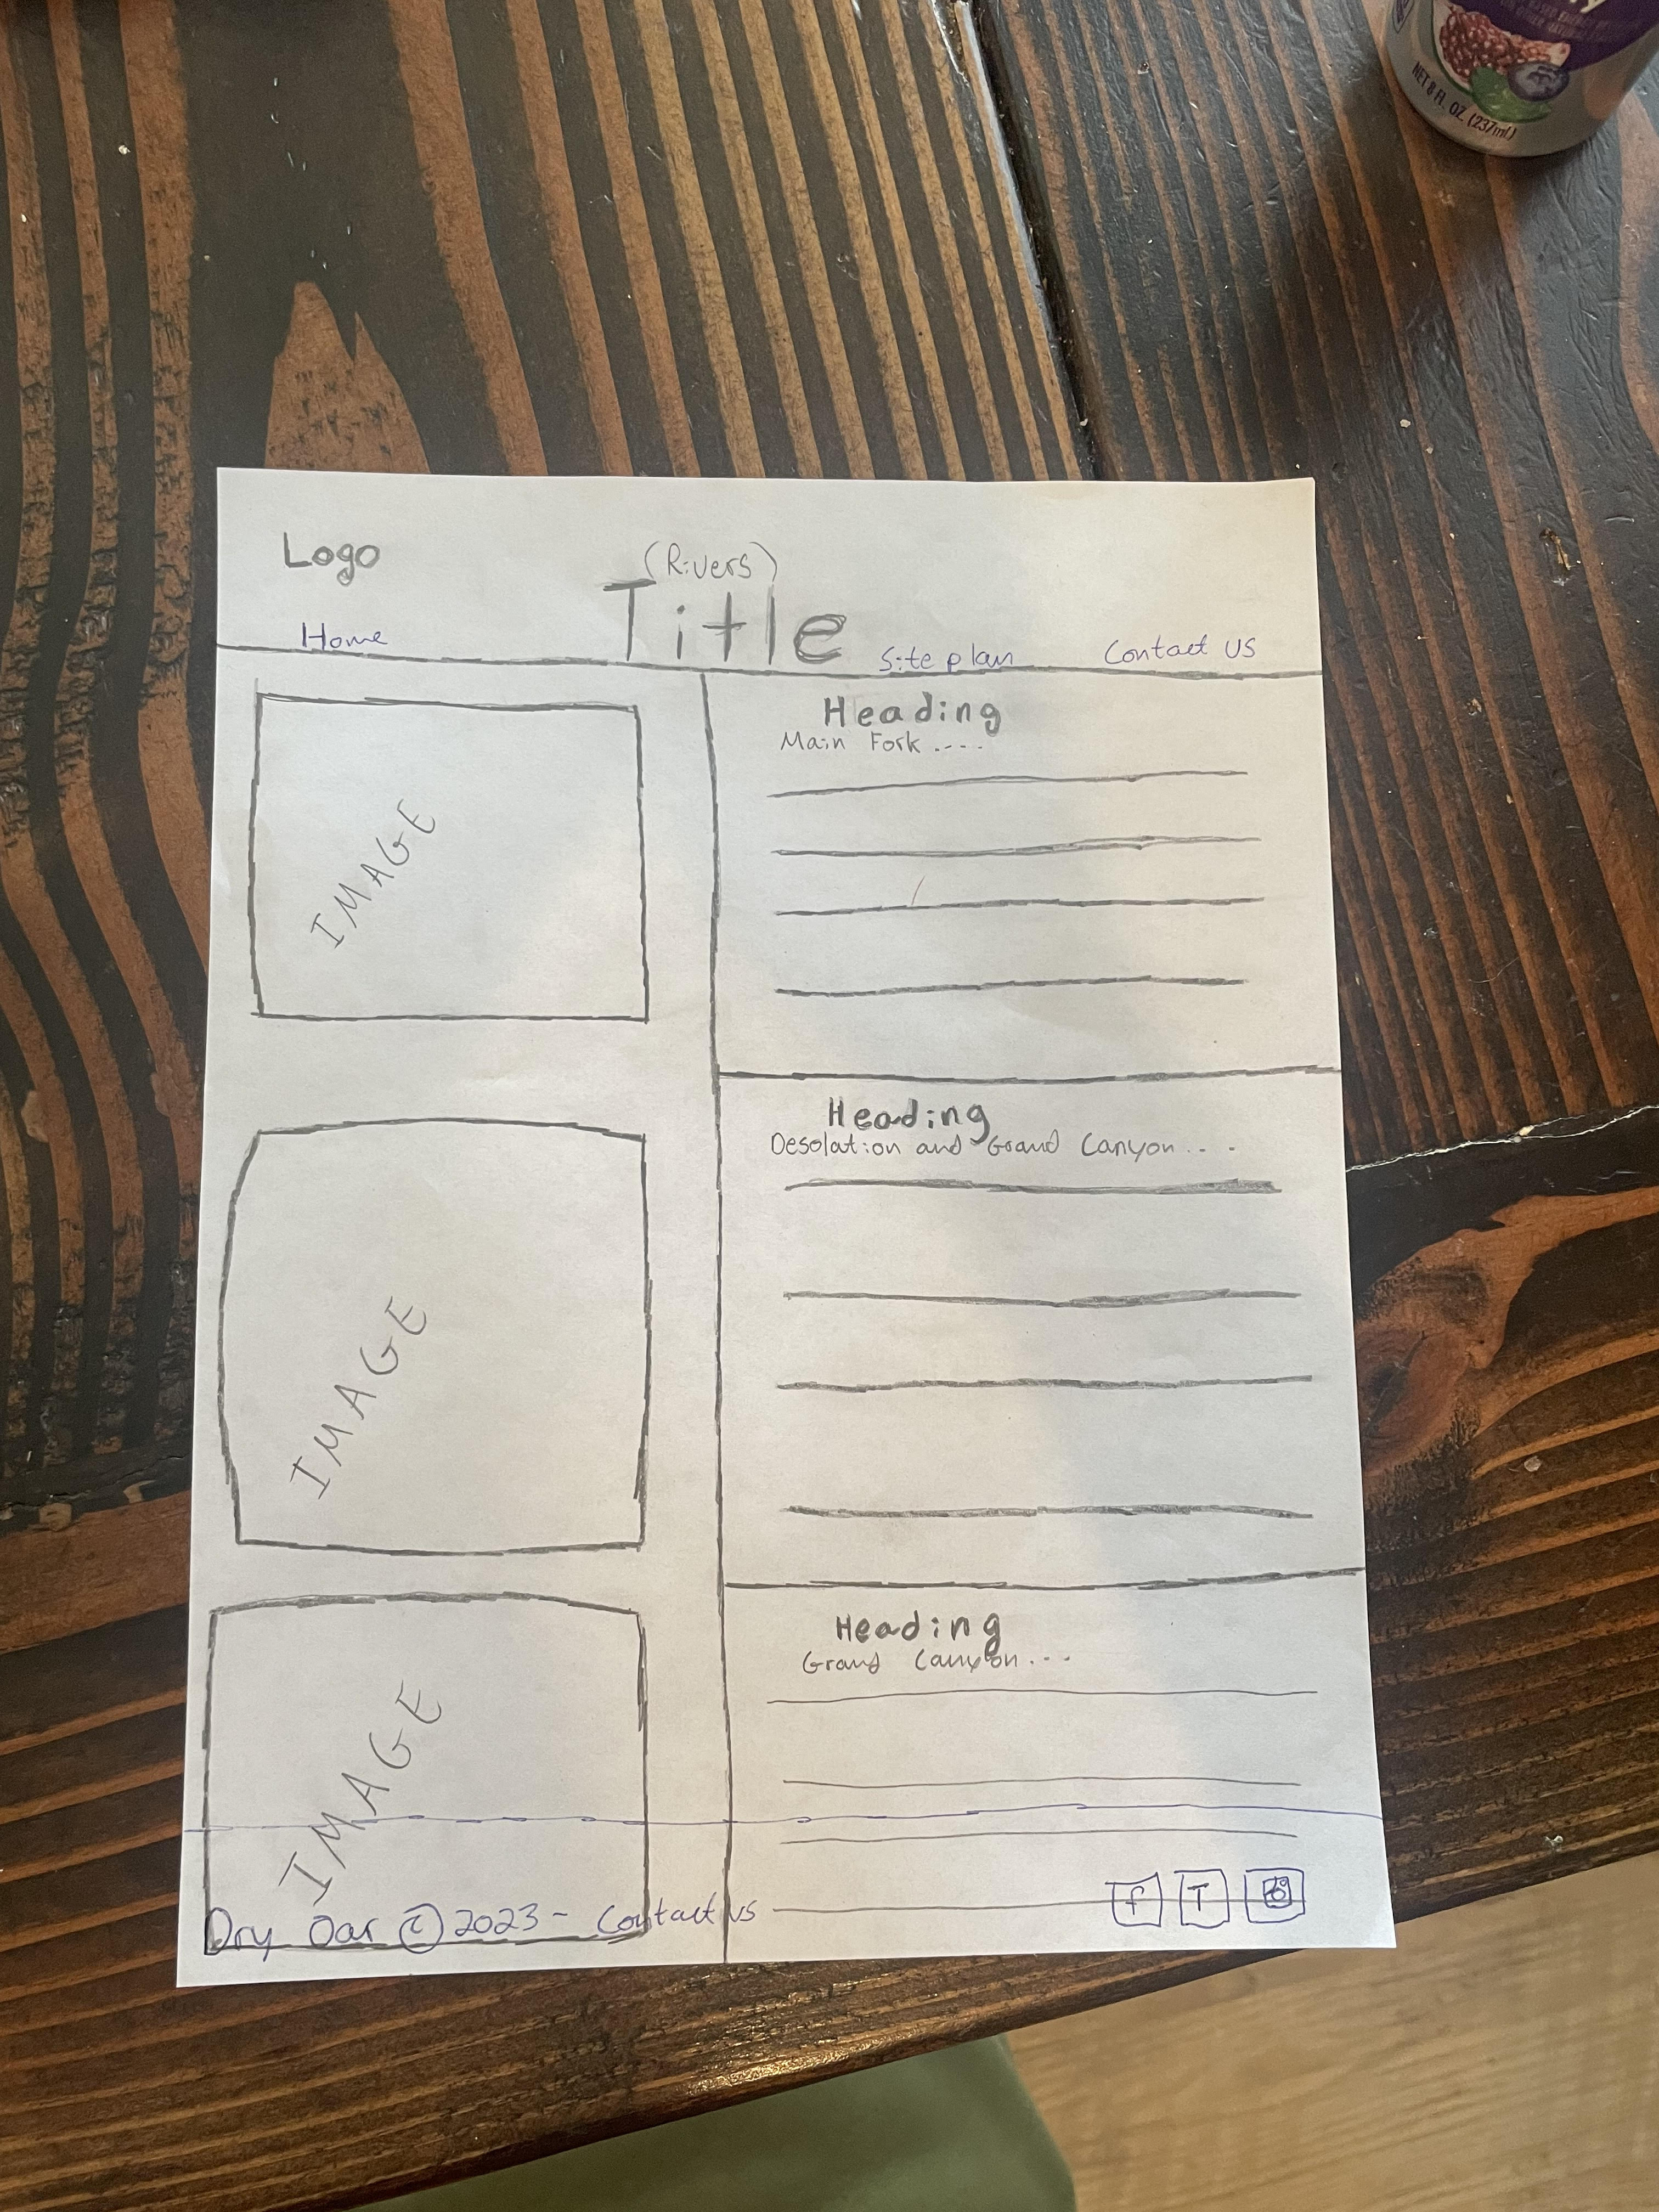 NET 8 FL. OZ. (237mL)
Logo
(Rivers)
Title
Home
Site plan
Contact US
IMAGE
Heading
Main Fork ....
IMAGE
Heading
Desolation and Grand Canyon . . .
IMAGE
Heading
Grand Canyon . . .
f T
Dry Oar © 2023 - Contact us